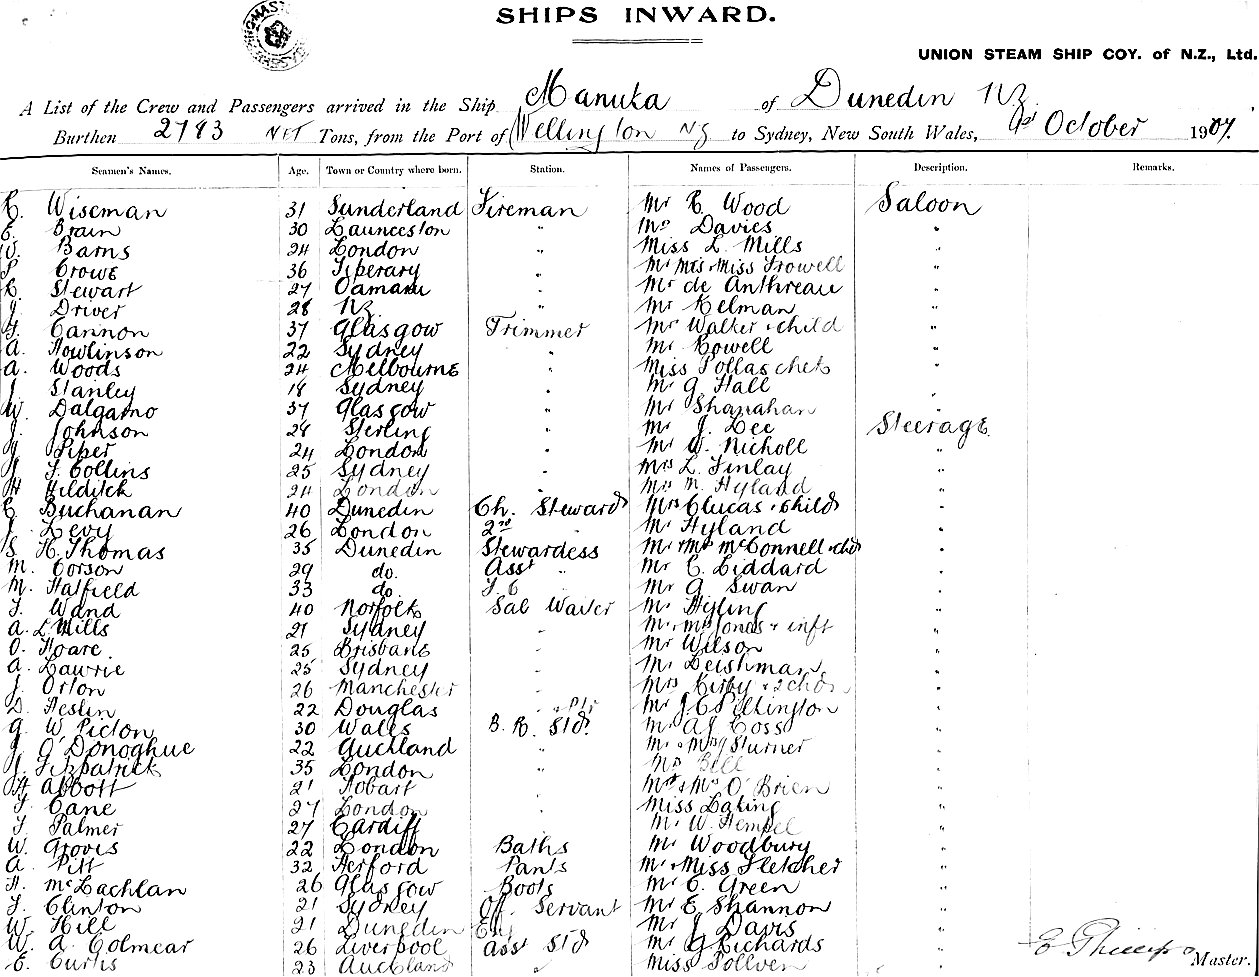 SHIPS INWARD.
UNION STEAM SHIP COY. of N.Z., Ltd.
A List of the Crew and Passengers arrived in the Ship Manuka of Dunedin NZ
Burthen 2783 NET Tons, from the Port of Wellington NZ to Sydney, New South Wales, October 1907.
Seamen's Names. Age. Town or Country where born. Station. Names of Passengers. Description. Remarks.
Wiseman 31 Sunderland Fireman Mr Wood Saloon
E. Brain 30 Launceston " Davies "
W. Barns 24 London " Miss L. Mills "
Crowe 36 Tiperary " Mr Mrs & Miss Trowell "
Stewart 27 Oamaru " de Anthreau "
J. Driver 28 NZ " Mr Kelman "
Cannon 37 Glasgow Trimmer Walker & child "
A. Howlinson 22 Sydney " Mr Rowell "
A. Woods 24 Melbourne " Miss Pollaschek "
J. Stanley 18 Sydney " Mr G. Hall "
W. Dalgarno 37 Glasgow " Mr Shanahan "
J. Johnson 28 Sterling " Mr J. Lee Steerage
Piper 24 London " Mr W. Nicholl "
Collins 25 Sydney " Mrs L. Finlay "
H. Hilditch 24 London " Mrs M. Hyland "
Buchanan 40 Dunedin Ch. Steward Mrs Clucas & child "
J. Levy 26 London 2nd " Mr Hyland "
S. H. Thomas 35 Dunedin Stewardess Mr & Mrs McConnell "
M. Corson 29 do. Asst " Mr C. Liddard "
M. Hatfield 33 do Mr G. Swan "
Wand 40 Norfolk Sal Waiter Mr Hyling "
A. L. Mills 21 Sydney " Mr & Mrs Jones & inft "
O. Hoare 25 Brisbane " Mr Wilson "
A. Lawrie 25 Sydney " Mr Leishman "
J. Orton 26 Manchester " Mrs Kirby & 2 chdn "
D. Heslin 22 Douglas " Mr J. C. Pillington "
G. W. Picton 30 Wales B. R. Std. Mr A. J. Coss "
J. O'Donoghue 22 Auckland " Sturner "
J. Fitzpatrick 35 London " Bell "
H. Abbott 21 Hobart " O'Brien "
Cane 27 London " Miss Laking "
Palmer 27 Cardiff " Mr W. Hempel "
W. Groves 22 London Baths Mr Woodbury "
A. Pitt 32 Herford Pants Mr & Miss Fletcher "
McLachlan 26 Glasgow Boots Mr C. Green "
Clinton 21 Sydney Off. Servant Mr E. Shannon "
W. Hill 21 Dunedin Mr J. Davis "
W. A. Colmear 26 Liverpool Asst Std Mr G. Richards "
Curtis 23 Auckland " Miss Pollven "
E Phillips Master.